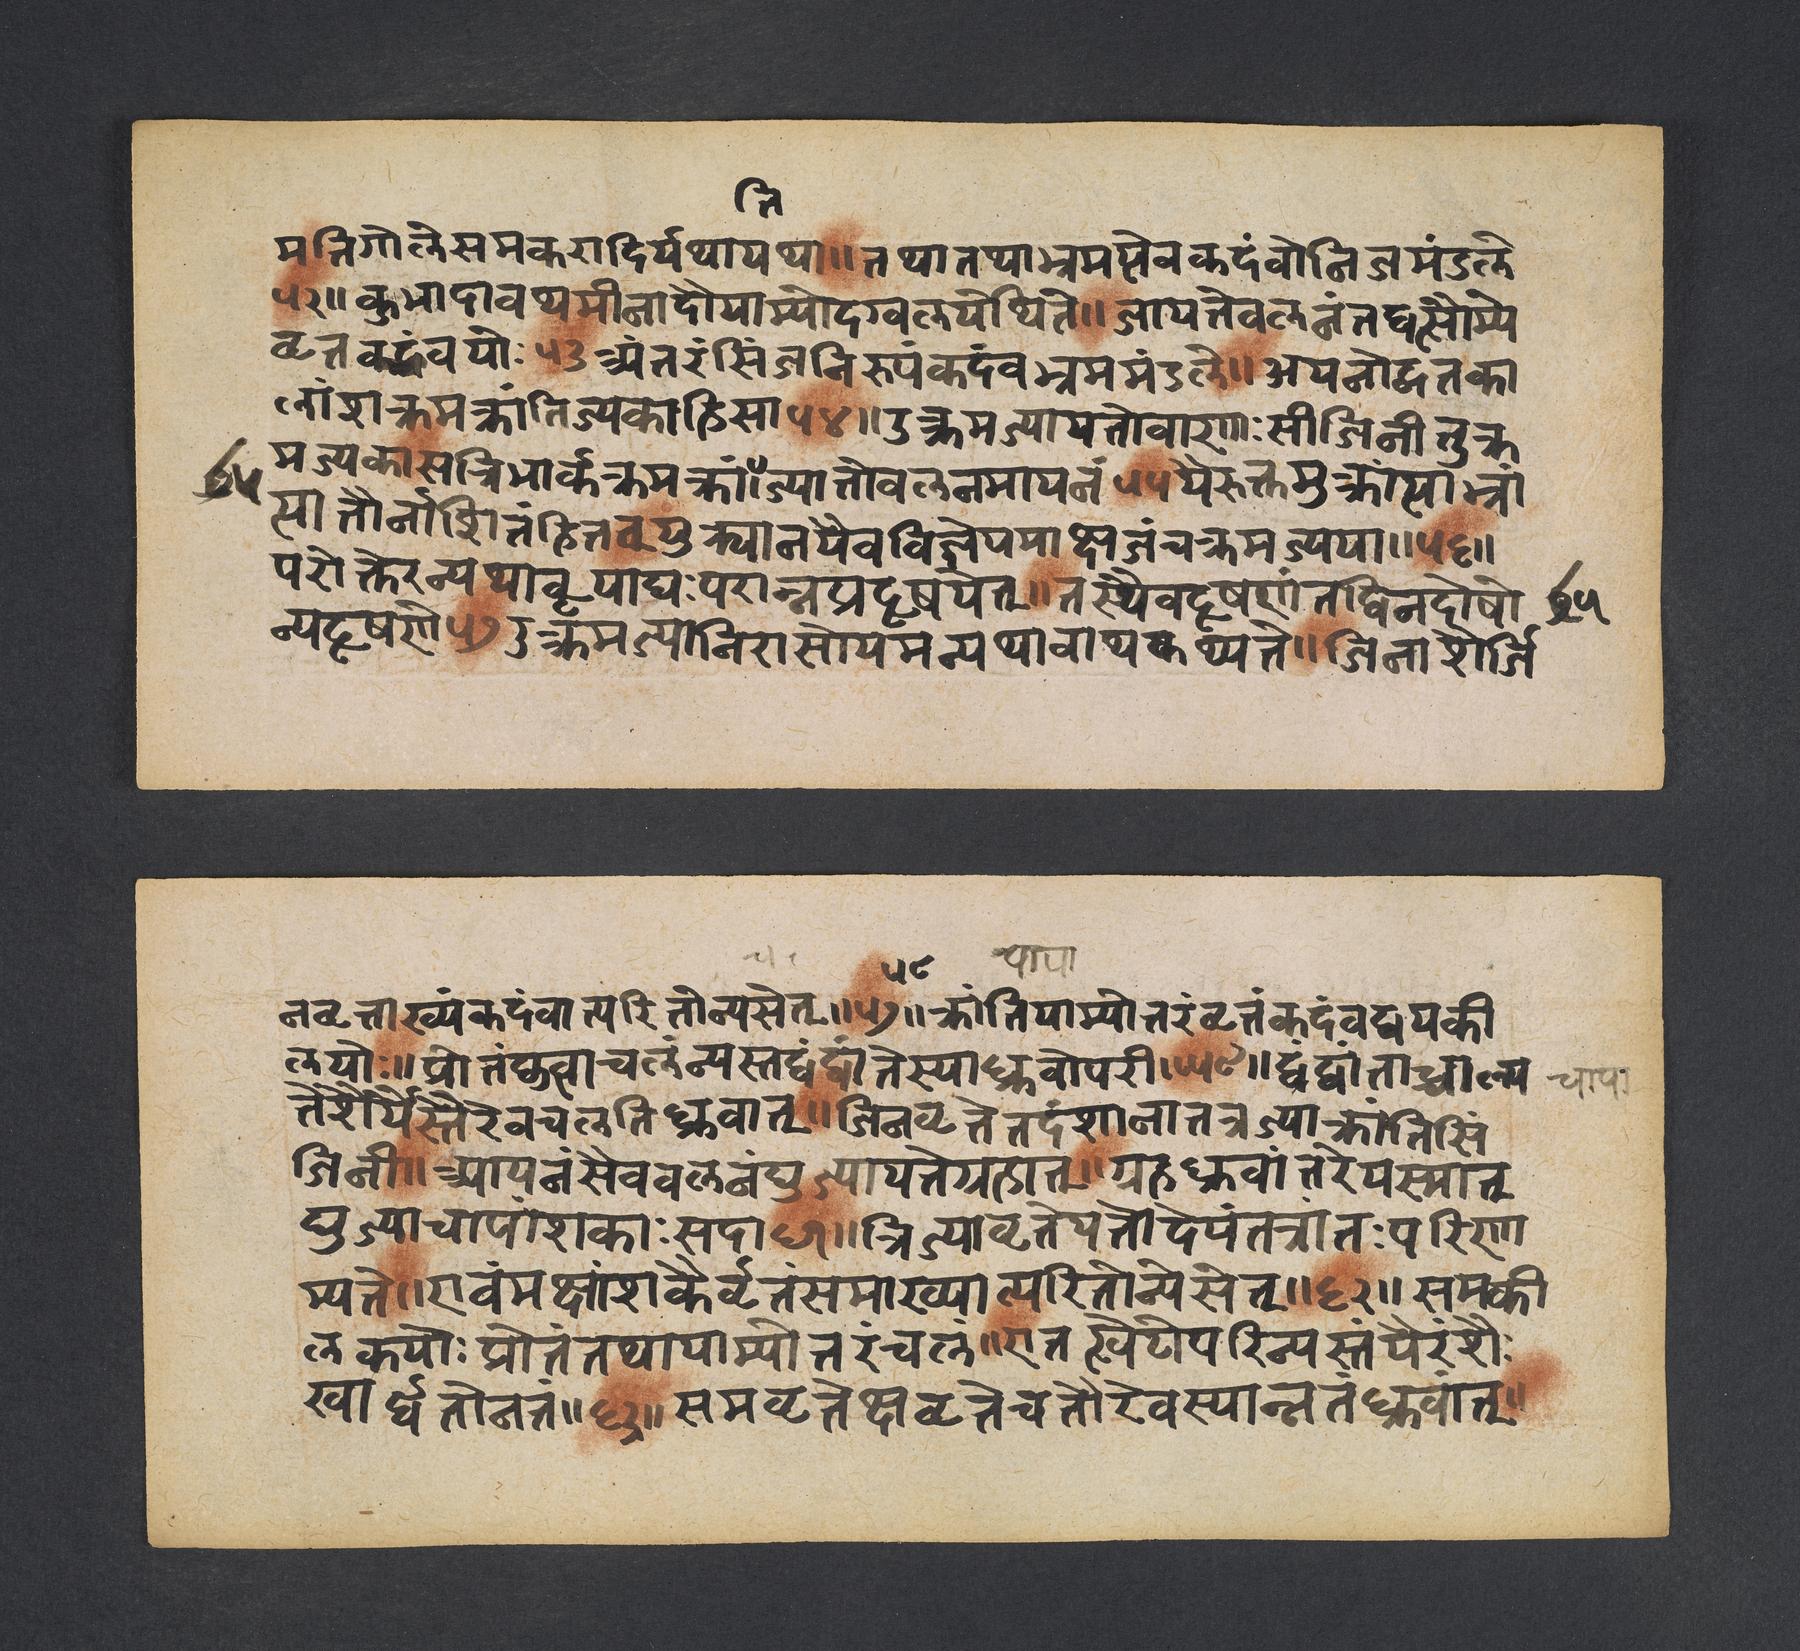 ति
मतिगोलेसमकरादिर्यथायथा॥तथातथाभ्रमत्येवकदंबोनिजमंडले
५२॥कुंभादावथमीनादौयाम्योदग्वलयेस्थिते॥जायतेवलनंतद्वत्सौम्ये
वृत्तकदंबयोः५३अंतरंसिंजनिरूपंकदंबभ्रममंडले॥अयनोद्वृत्तका
लांशक्रमक्रांतिज्यकाहिसा५४॥उत्क्रमज्यायतोबाणःसींजिनीतुक्र
मज्यकासत्रिभार्कक्रमक्रांतिज्यातोवलनमायनं५५यैरुक्तमुत्क्रांत्याभ्रां
त्यातैर्नाशितंहितत्युक्त्यानयैवविज्ञेयमाक्षजंचक्रमज्यया॥५६॥
परोक्तेरन्यथाब्रूयाद्यःपरान्नप्रदूषयेत्॥तस्यैवदूषणंतद्धिनदोषो
६५
६५
न्यदूषणे५७उत्क्रमज्यानिरासोयमन्यथावाथकथ्यते॥जिनांशैर्जि
५८ चापा
नवृत्ताख्यंकदंबात्परितोन्यसेत्॥५७॥क्रांतियाम्योत्तरंवृत्तंकदंबद्वयकी
लयोः॥प्रोतंकृत्वाचलंन्यस्तद्वंद्वांतेस्याद्ध्रुवोपरी॥५९॥द्वंद्वांताच्चाल्य
चापा
तेंशैर्यैस्तैरेवचलतिध्रुवात्॥जिनवृत्तेतदंशानांतत्रज्याक्रांतिसिं
जिनी॥आयनंसैववलनंद्युज्याग्रेजायतेग्रहात्॥ग्रहध्रुवांतरेयस्मात्
द्युज्याचापांशकाःसदा६१॥त्रिज्यावृत्तेयतोदेयंतत्रातःपरिण
म्यते॥एवंमक्षांशकैर्वृत्तंसमाख्यात्परितोन्यसेत्॥६२॥समकी
लकयोःप्रोतंतथायाम्योत्तरंचलं॥एतत्खेटोपरिन्यस्तंयैरंशैः
खार्धतोनतं॥६३॥समवृत्तेक्षवृत्तेचतैरेवस्यान्नतंध्रुवात्॥